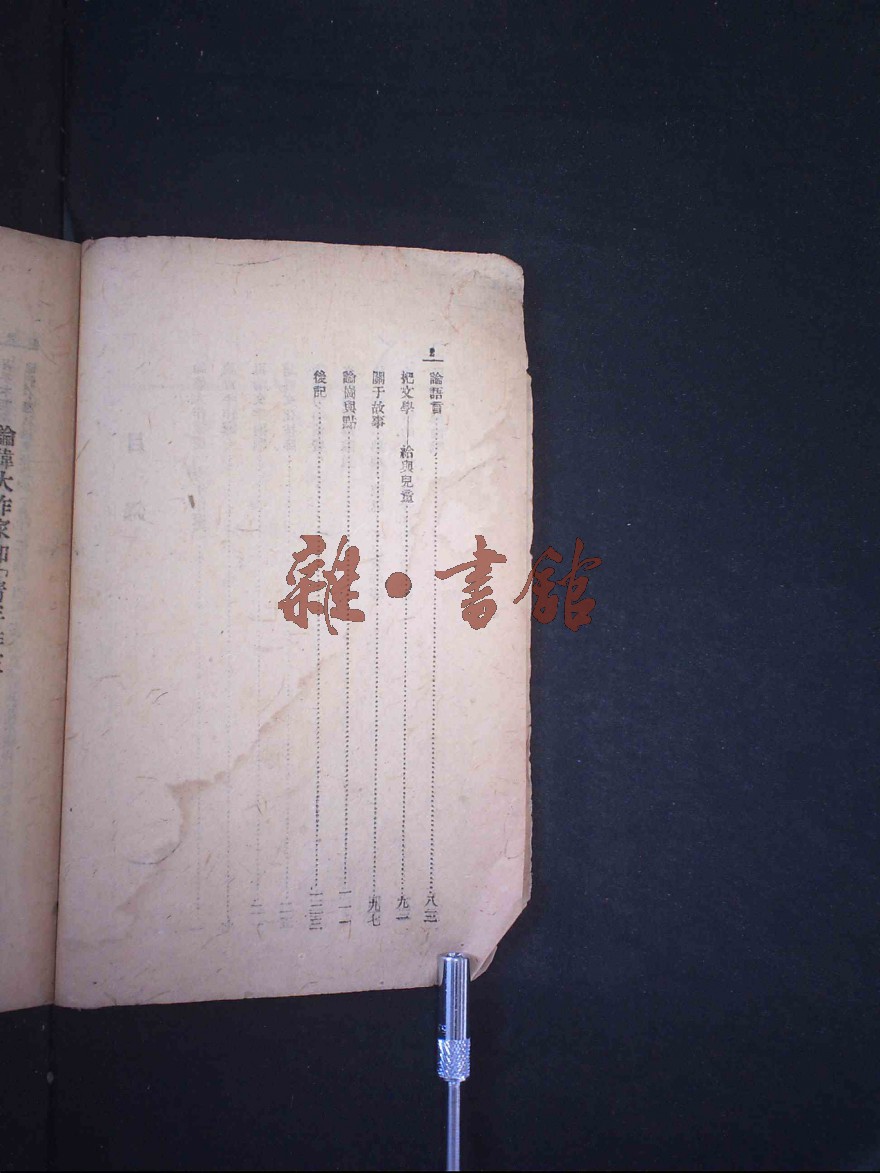 論語言⋯⋯⋯⋯⋯⋯⋯⋯⋯⋯八三
把文學——給與兒童⋯⋯⋯⋯⋯⋯⋯⋯九三
關于故事⋯⋯⋯⋯⋯⋯⋯⋯⋯⋯九七
論崗與點⋯⋯⋯⋯⋯⋯⋯⋯⋯⋯一一一
後記⋯⋯⋯⋯⋯⋯⋯⋯⋯⋯一二三
雜·書館
論偉大作家和「青年